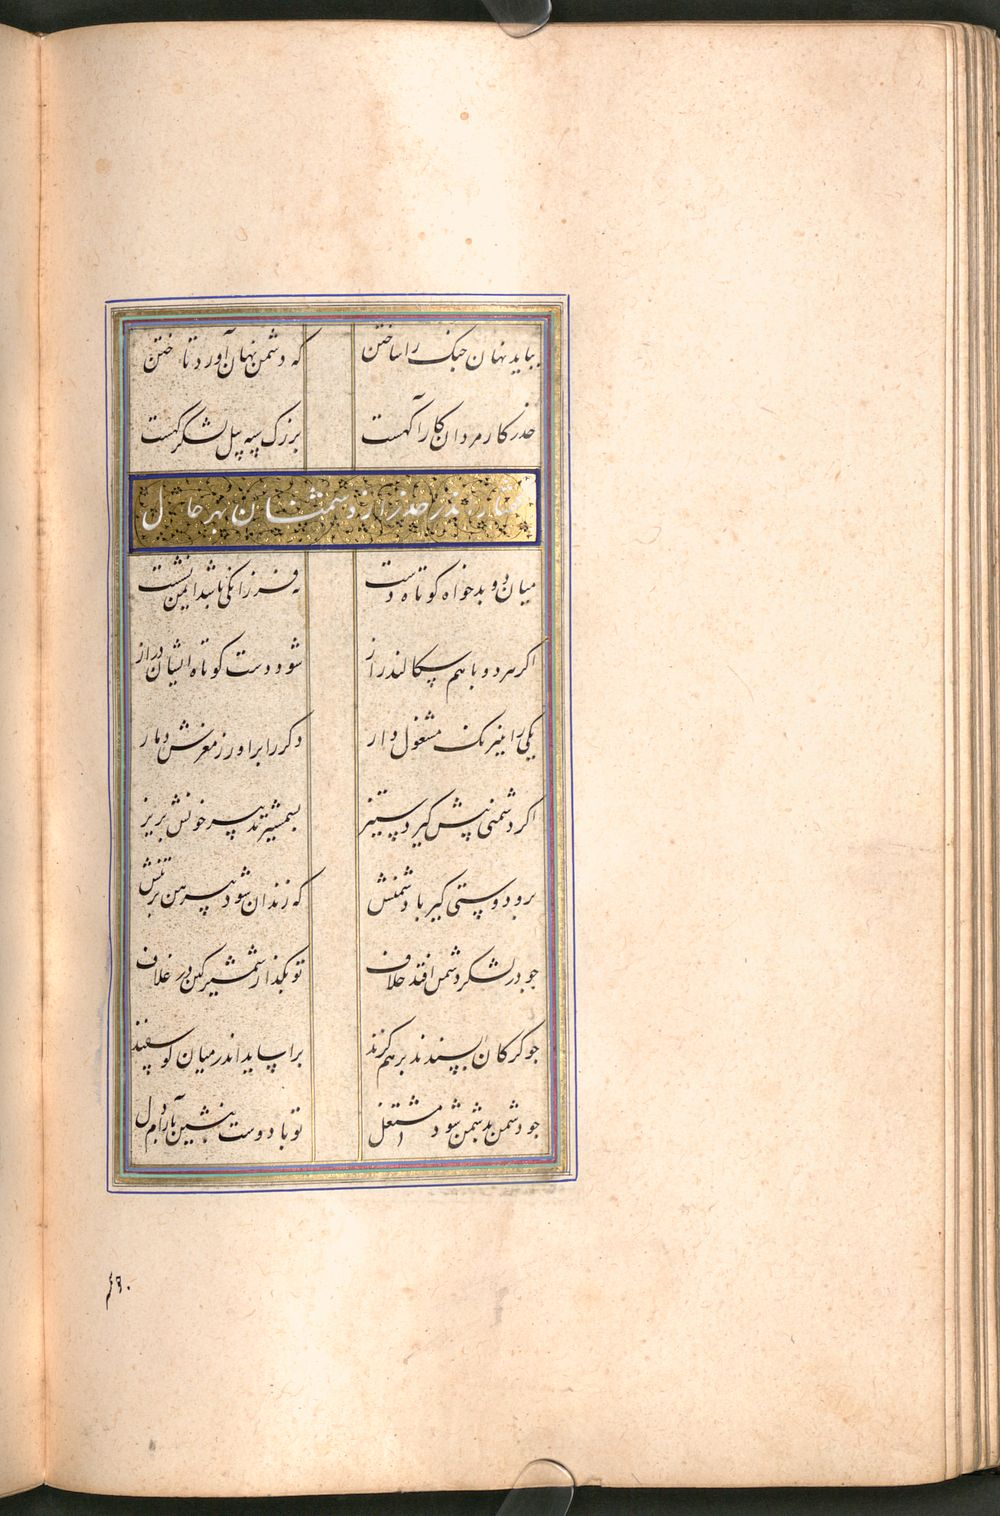 بباید نهان جنک را ساختن که دشمن نهان آورد تاختن
حذر کار مردان کار آکهست بزک سپه سل لشکر کهست
گفتار اندر حذر از دشمنان بهر حال
میان دو بدخواه کوتاه دست نه فرزانکی باشد ایمن نشست
اکر هر دو با هم سکالند راز شود دست کوتاه ایشان دراز
یکی را بنیرنک مشغول دار دکر را برآور ز مغزش دمار
اکر دشمنی پیش کیرد ستیز بشمشیر تدبیر خونش بریز
برو دوستی کیر با دشمنش که زندان شود پیرهن بر تنش
جو در لشکر دشمن افتد خلاف تو بکذار شمشیر کین در غلاف
جو کرکان پسندند بر هم کزند برآساید اندر میان کوسفند
جو دشمن بدشمن شود مشتغل تو با دوست بنشین بآرام دل